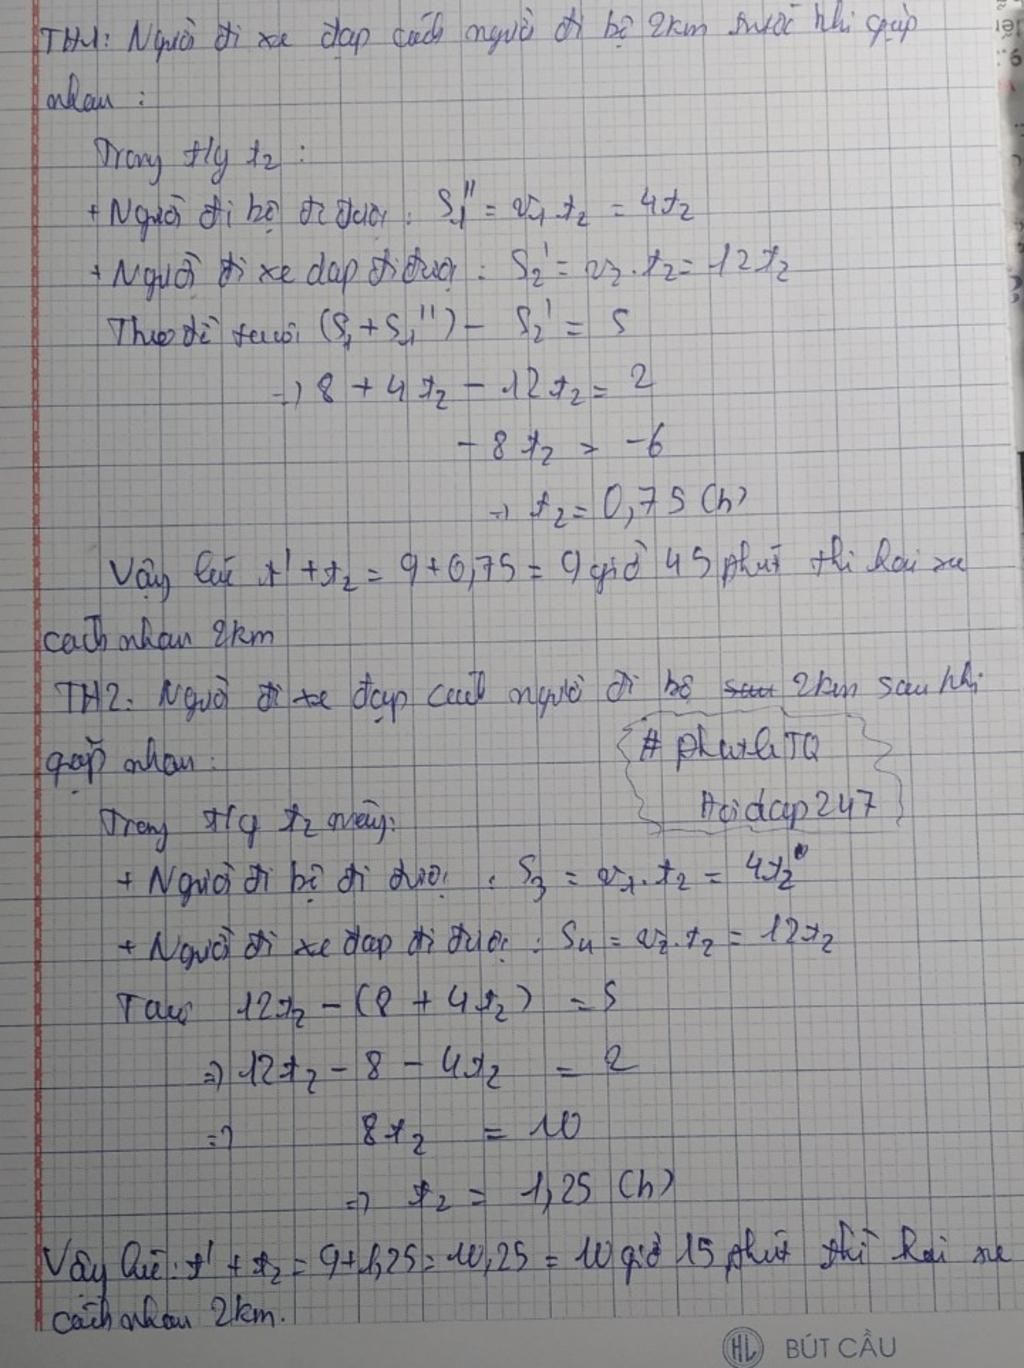 TH1: Người đi xe đạp cách người đi bộ 2km trước khi gặp
nhau :
Trong t/g t2 :
+ Người đi bộ đi được : S1'' = v1.t2 = 4t2
+ Người đi xe đạp đi được : S2' = v2.t2 = 12t2
Theo đề (S1 + S1'') - S2' = S
=> 8 + 4t2 - 12t2 = 2
- 8t2 = -6
=> t2 = 0,75 (h)
Vậy lúc t' + t2 = 9 + 0,75 = 9 giờ 45 phút thì hai xe
cách nhau 2km
TH2: Người đi xe đạp cách người đi bộ sau 2km sau khi
gặp nhau:
# TQ
Hoidap247
Trong t/g t2 này:
+ Người đi bộ đi được : S3 = v1.t2 = 4t2
+ Người đi xe đạp đi được : S4 = v2.t2 = 12t2
Ta có 12t2 - (8 + 4t2) = S
=> 12t2 - 8 - 4t2 = 2
=> 8t2 = 10
=> t2 = 1,25 (h)
Vậy lúc: t' + t2 = 9+1,25 = 10,25 = 10 giờ 15 phút thì hai xe
cách nhau 2km.
HL BÚT CẦU